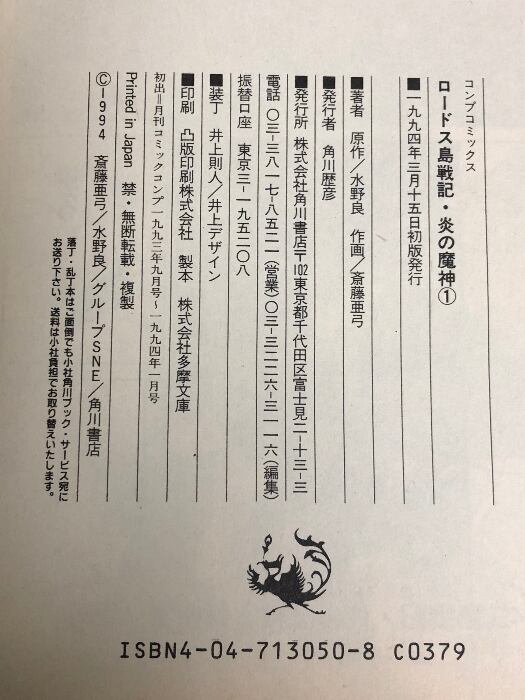 コンプコミックス
ロードス島戦記・炎の魔神①
■一九九四年三月十五日初版発行
■著者 原作/水野良 作画/斎藤亜弓
■発行者 角川歴彦
■発行所 株式会社角川書店〒102東京都千代田区富士見二-十三-三
電話 〇三-三八一七-八五二一(営業)〇三-三二二六-三一一六(編集)
振替口座 東京三-一九五二〇八
■装丁 井上則人/井上デザイン
■印刷 凸版印刷株式会社 製本 株式会社多摩文庫
初出=月刊コミックコンプ一九九三年九月号~一九九四年一月号
Printed in Japan 禁・無断転載・複製
©1994 斎藤亜弓/水野良/グループSNE/角川書店
落丁・乱丁本はご面倒でも小社角川ブック・サービス宛に
お送り下さい。送料は小社負担でお取り替えいたします。
ISBN4-04-713050-8 C0379